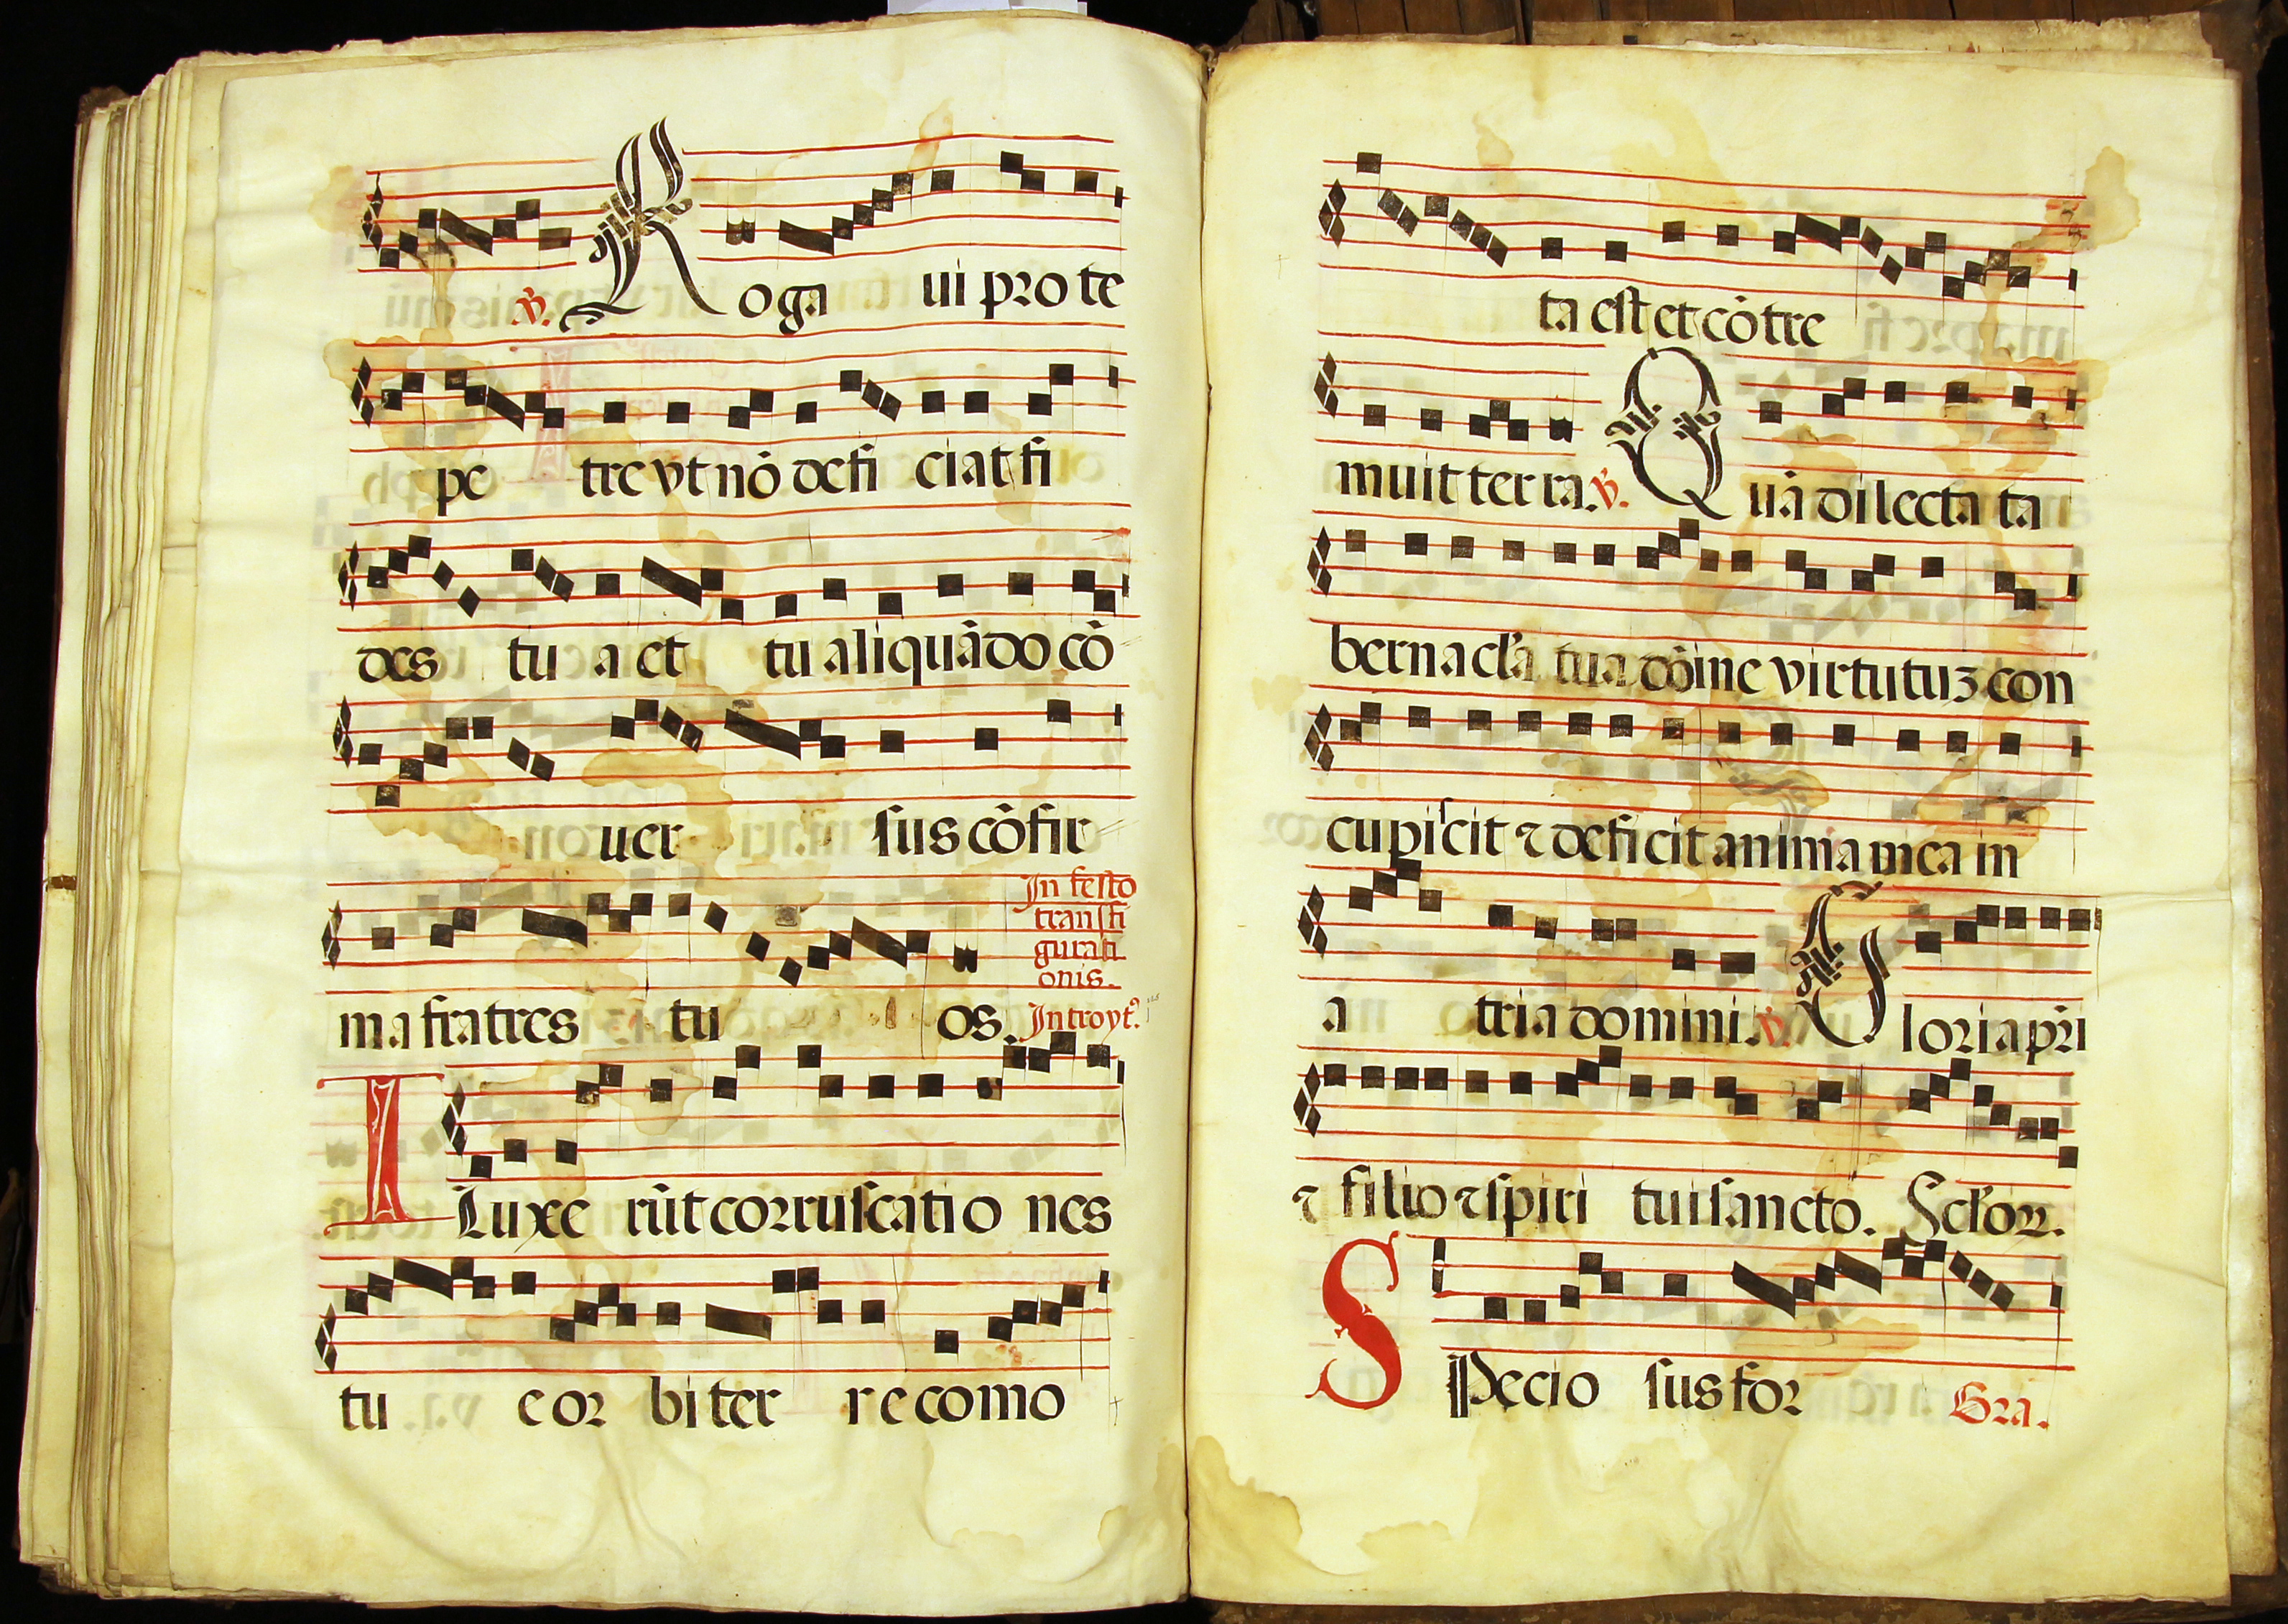 ℣. Roga ui pro te
pe tre vt nō defi ciat fi
des tu a et tu aliquādo cō
uer sus cōfir
In festo
transfi
gurati
onis.
ma fratres tu os. Introyt⁹.
ILluxe rūt corruscatio nes
tu e or bi ter re como
ta est et cō tre
muit ter ra. ℣. Quā dilecta ta
bernacl'a tua dōine virtutuꝫ con
cupiscit ⁊ deficit anima mea in
a tria domini. ℣. Gloria pr̄i
⁊ filio ⁊ spiri tui sancto. Sel'oꝝ.
SPecio sus for Gra.